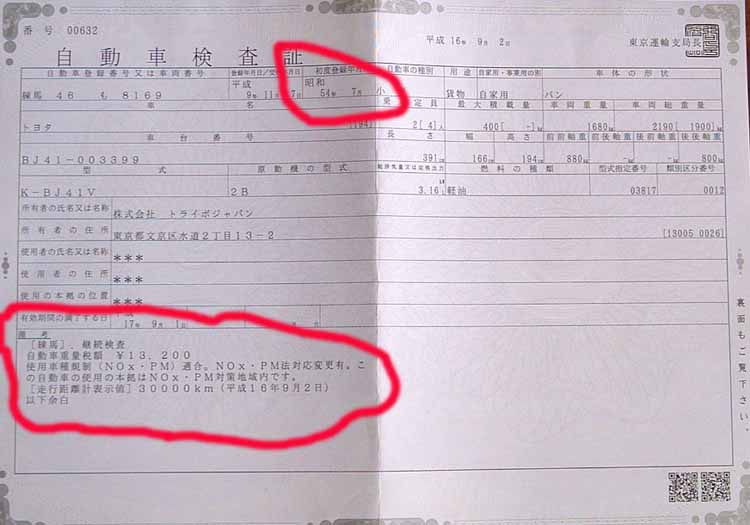 番 号 00632
平成 16年 9月 2日
東京運輸支局長
自 動 車 検 査 証
自動車登録番号又は車両番号 初度登録年月 自動車の種別 用途 自家用・事業用の別 車体の形状
練馬 46 も 8169 平成 9年 11月 7日 昭和 54年 7月 小 貨物 自家用 バン
車 名 乗 定員 最大積載量 車両重量 車両総重量
トヨタ 2[ 4]人 400[ -]kg 1680kg 2190[ 1900]kg
車 台 番 号 長 さ 幅 高 さ 前前軸重 前後軸重 後前軸重 後後軸重
BJ41-003399 391cm 166cm 194cm 880kg -kg -kg 800kg
型 式 原動機の型式 総排気量又は定格出力 燃料の種類 型式指定番号 類別区分番号
K-BJ41V 2B 3.16 軽油 03817 0012
所有者の氏名又は名称 株式会社 トライボジャパン
所有者の住所 東京都文京区水道2丁目13-2 [13005 0026]
使用者の氏名又は名称 ***
使用者の住所 ***
使用の本拠の位置 ***
有効期間の満了する日 17年 9月 1日
備 考
[練馬]、継続検査
自動車重量税額 ¥13,200
使用車種規制(NOx・PM)適合。NOx・PM法対応変更有。こ
の自動車の使用の本拠はNOx・PM対策地域内です。
[走行距離計表示値]30000km(平成16年9月2日)
以下余白
裏面もご覧下さい。